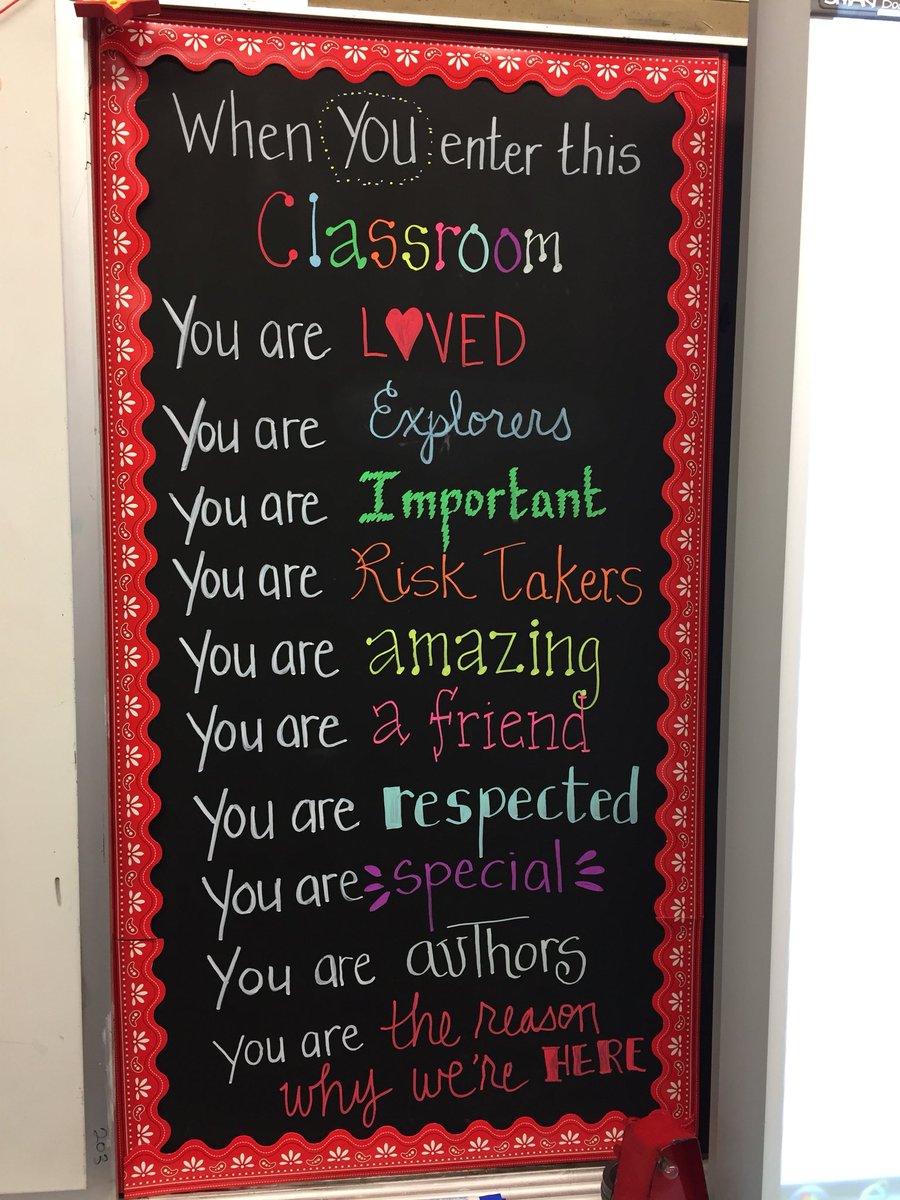 When You enter this
Classroom
You are LOVED
You are Explorers
You are Important
You are Risk Takers
You are amazing
You are a friend
You are respected
You are special
You are authors
You are the reason
why we're HERE
203